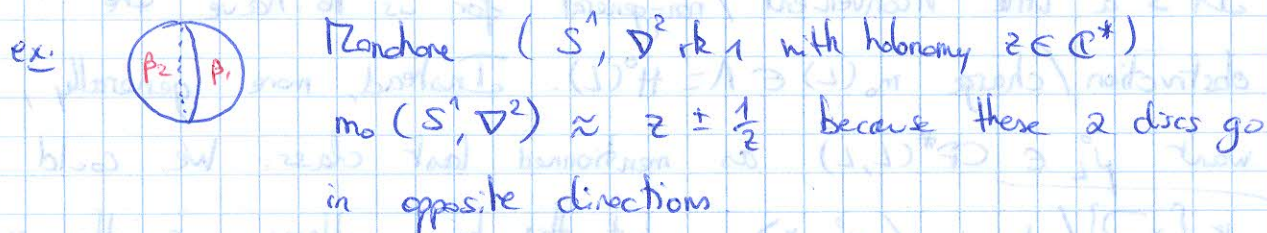 ex: β₂ β₁ Monotone (S¹, ∇², rk 1 with holonomy z ∈ ℂ*)
m₀ (S¹, ∇²) ≈ z ± 1/z because these 2 discs go
in opposite directions